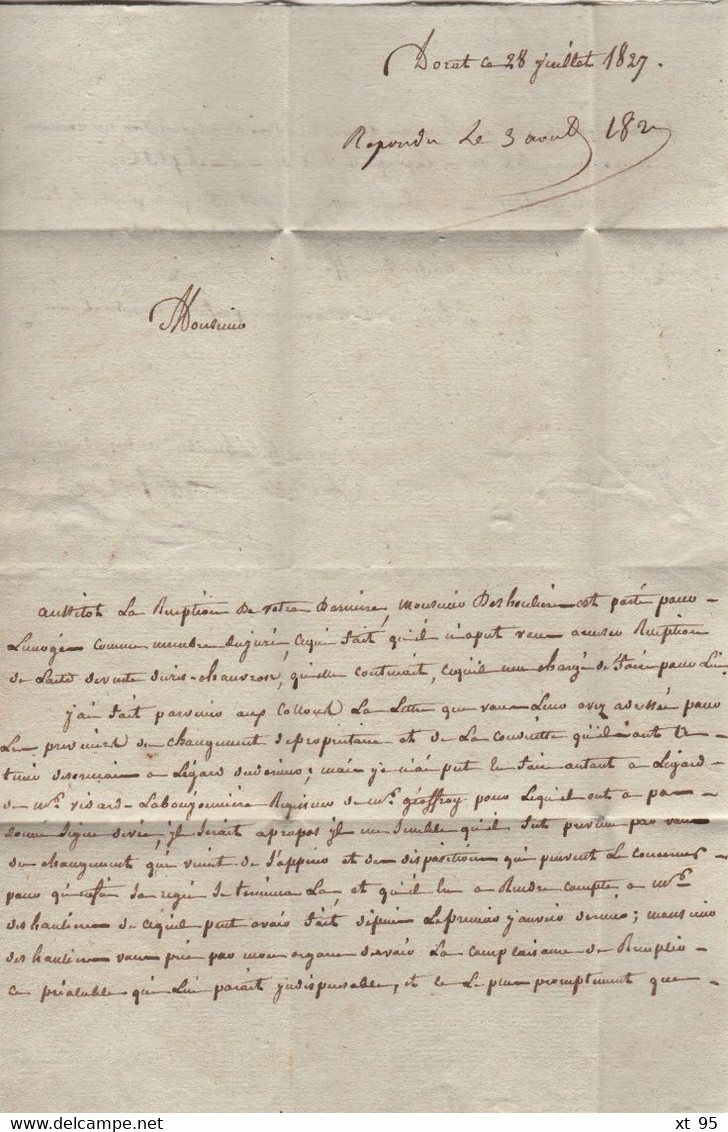 Dorat ce 28 juillet 1827.
Repondu Le 3 aout 182
Monsieur
aussitot La Reception De votre Derniere, monsieur Deshoulieres est parti pour
Limoges comme membre du juré, ce qui fait qu'il n'a put vous accuser Reception
de Lacte de vente du ris-chauveron, qu'elle contenait, ce qu'il me charge de faire pour Lui
j'ai fait parvenir aux Collons La Lettre que vous Leur avez adressée pour
Les prevenir du changement de propriétaire et de La conduitte qu'ils ont à te-
nir desormais a Légard du domaine; mais je n'ai put en faire autant a Légard
de mr. visard-Labougonniere Regisseur de mr. geoffroy pour Lequel il na pas
donné signe de vie, jl serait apropos jl me semble qu'il fut prevenu par vous
du changement qui vient de s'opperer et des dispositions qui peuvent Le concerner
pour qu'enfin sa regie se termine La et qu'il ait a Rendre compte a mr.
deshoulieres de ce qu'il peut avoir fait depuis Le premier janvier dernier; monsieur
deshoulieres vous prie par mon organe d'avoir La complaisance de Remplir
ce préalable qui Lui parait jndispensable, et ce Le plus promptement que
www.delcampe.net
xt 95